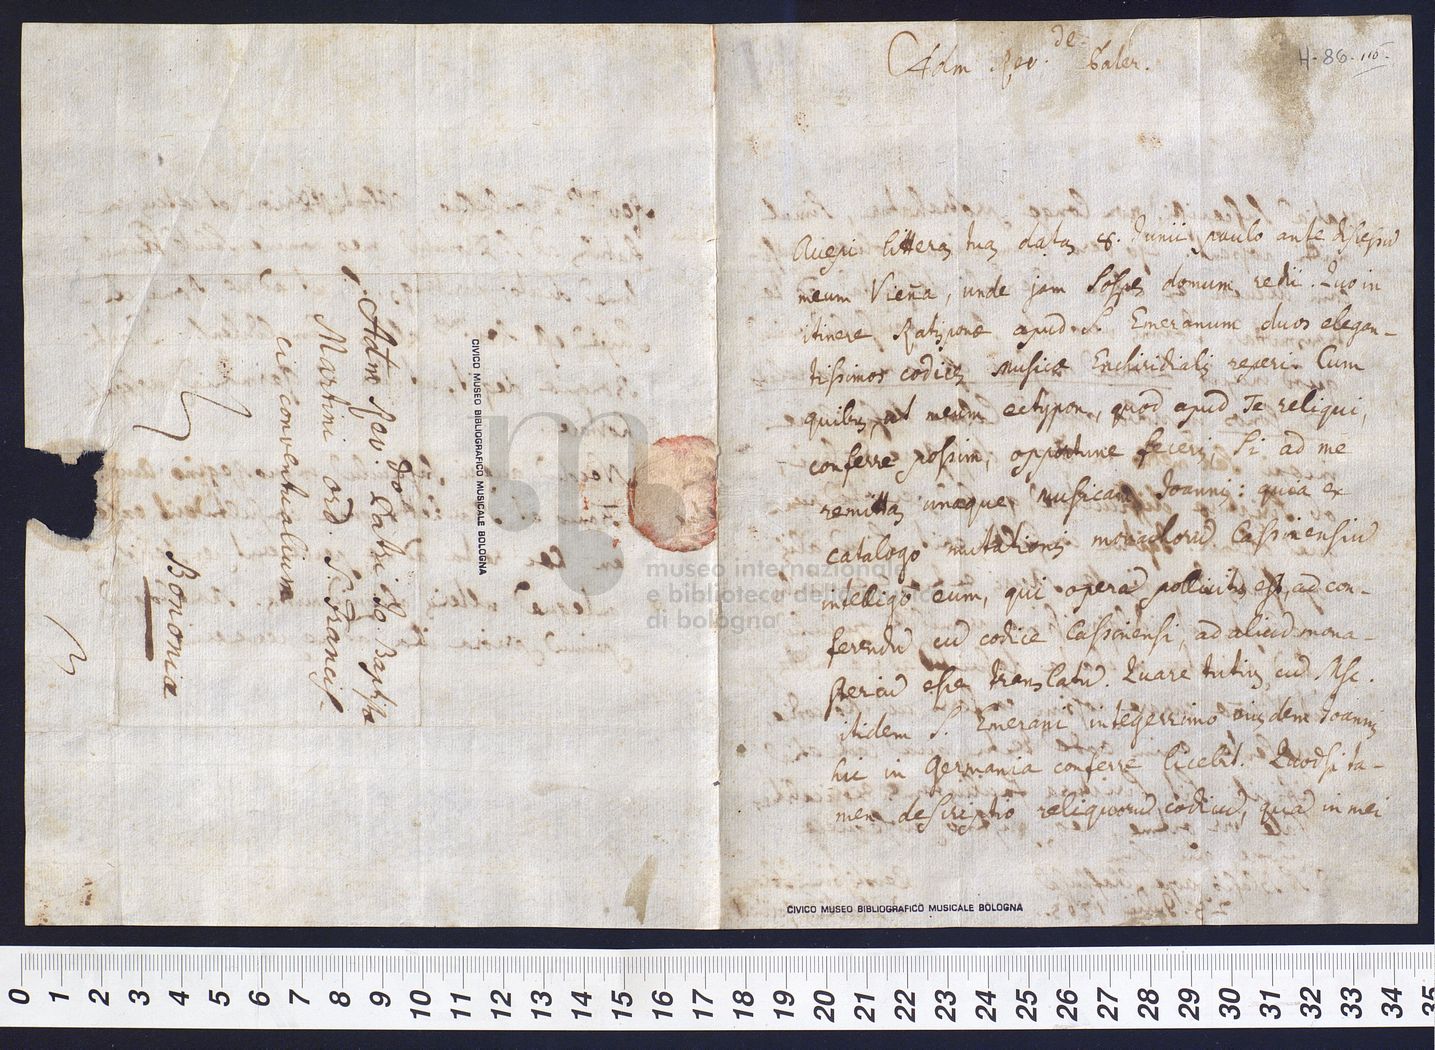 Adm Rev.de Pater.
H. 86. 110
Accepi litteras tuas datas 8. Junii paulo ante discessū
meum Vieña, unde jam sospes domum redii. Quo in
itinere Ratisponæ apud S. Emeranum duos elegan-
tissimos codices Musicæ Enchiridialis reperi. Cum
quibus ut meum ectypon, quod apud Te reliqui,
conferre possim, opportune feceris, si ad me
remittas unaque Musicam Joannis: quia ex
catalogo mutationis monachorū Cassinensiū
intelligo eum, qui operā pollicitus est, ad con-
ferendū cū codice Cassinensi, ad aliud mona-
steriū esse translatū. Quare tutius cū Msc.
itidem S. Emerani integerrimo eiusdem Joannis
hic in Germania conferre licebit. Quodsi ta-
men descriptio reliquorū codicū, quā in mei
CIVICO MUSEO BIBLIOGRAFICO MUSICALE BOLOGNA
Adm Rev. do Patri Jo. Baptistæ
Martini ord. S. Francis-
ci conventualium
Bononia
CIVICO MUSEO BIBLIOGRAFICO MUSICALE BOLOGNA
museo internazionale
e biblioteca della musica
di bologna
0 1 2 3 4 5 6 7 8 9 10 11 12 13 14 15 16 17 18 19 20 21 22 23 24 25 26 27 28 29 30 31 32 33 34 35